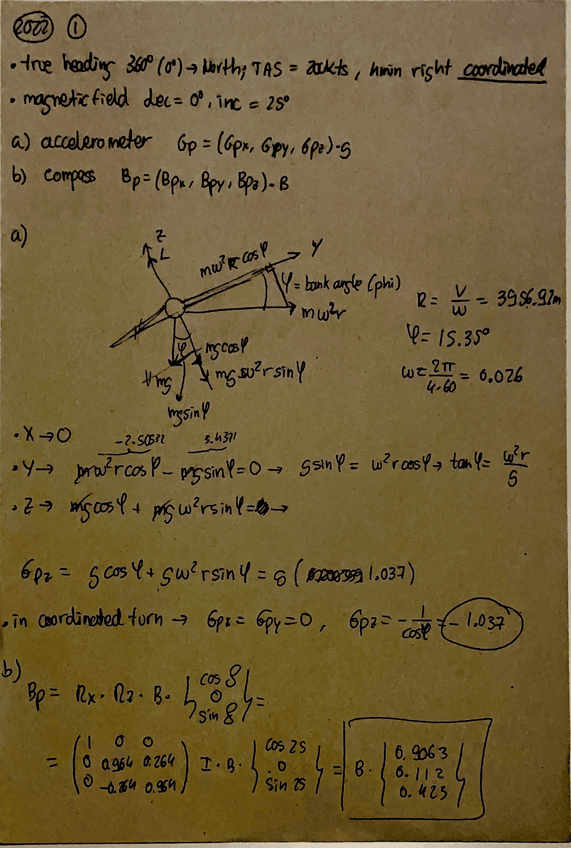 2022 ①
• true heading 360° (0°) → North; TAS = 200kts, 4min right coordinated
• magnetic field dec = 0°, inc = 25°
a) accelerometer Gp = (Gpx, Gpy, Gpz)·g
b) compass Bp = (Bpx, Bpy, Bpz)·B
a)
Z
L
mω²r cosφ
Y
φ = bank angle (phi)
mω²r
φ
mgcosφ
mg
mgω²r sinφ
mgsinφ
R = V/ω = 3956.92m
φ = 15.35°
ω = 2π/4·60 = 0.026
• X → 0
-2.50532
5.4371
• Y → mω²r cosφ - mg sinφ = 0 → g sinφ = ω²r cosφ → tanφ = ω²r/g
• Z → mg cosφ + mg ω²r sinφ = →
Gpz = g cosφ + gω²r sinφ = g ( 1.037)
• in coordinated turn → Gpx = Gpy = 0, Gpz = - 1/cosφ = - 1.037
b)
Bp = Rx · Rz · B · { cos δ 0 sin δ } =
= ( 1 0 0 0 0.964 0.264 0 -0.264 0.964 ) I · B · { cos 25 0 sin 25 } = B · { 0.9063 0.112 0.423 }